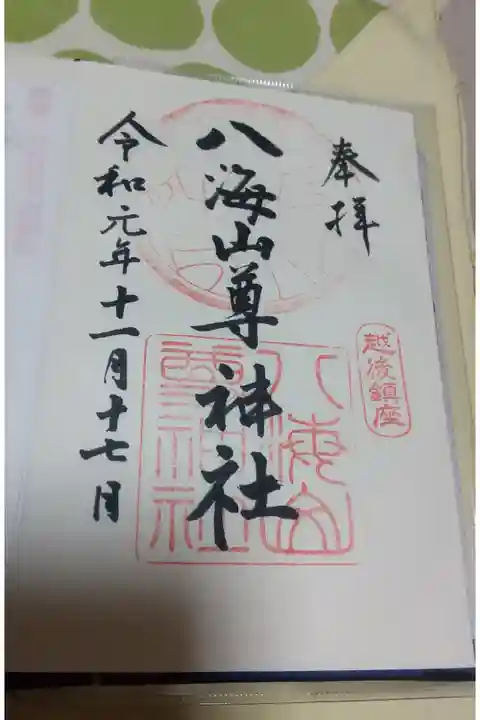 奉拝
越後鎮座
八海山尊神社
令和元年十一月十七日